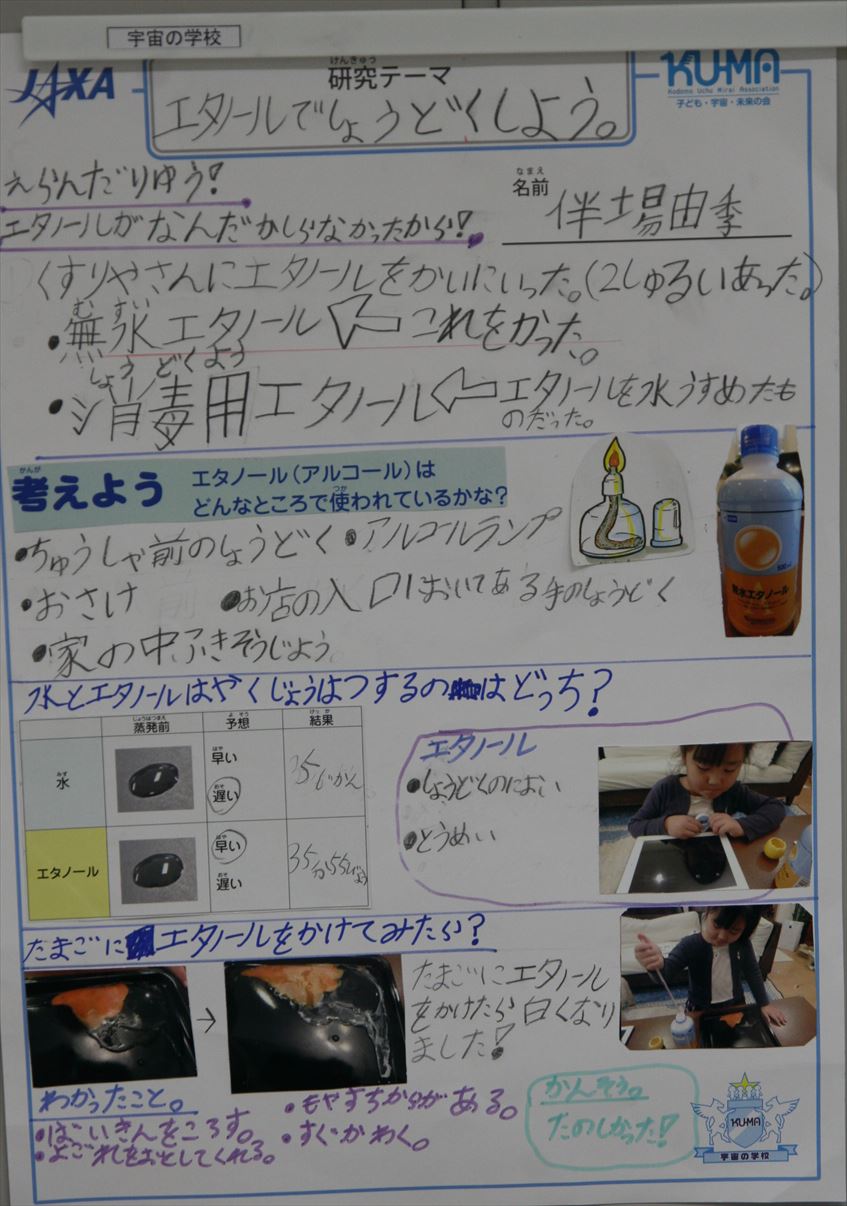 宇宙の学校
JAXA
けんきゅう
研究テーマ
エタノールでしょうどくしよう。
KU-MA
Kodomo Uchu Mirai Association
子ども・宇宙・未来の会
えらんだりゆう!
エタノールがなんだかしらなかったから!
なまえ
名前 伴場由季
くすりやさんにエタノールをかいにいった。(2しゅるいあった。)
むすい
・無水エタノール ← これをかった。
しょうどくよう
・消毒用エタノール ← エタノールを水うすめたも
のだった。
かんが
考えよう
エタノール(アルコール)は
つか
どんなところで使われているかな?
・ちゅうしゃ前のしょうどく ・アルコールランプ
・おさけ ・お店の入口においてある手のしょうどく
・家の中ふきそうじよう
無水エタノール
水とエタノールはやくじょうはつするのはどっち?
じょうはつまえ よそう けっか
蒸発前 予想 結果
みず
水
はや
早い
おそ
遅い
35じかん
エタノール
はや
早い
おそ
遅い
35分55びょう
エタノール
・しょうどくのにおい
・とうめい
たまごにエタノールをかけてみたら?
→
たまごにエタノール
をかけたら白くなり
ました!
わかったこと。
・ばいきんをころす。
・よごれをおとしてくれる。
・もやすちからがある。
・すぐかわく。
かんそう。
たのしかった!
KU-MA
宇宙の学校